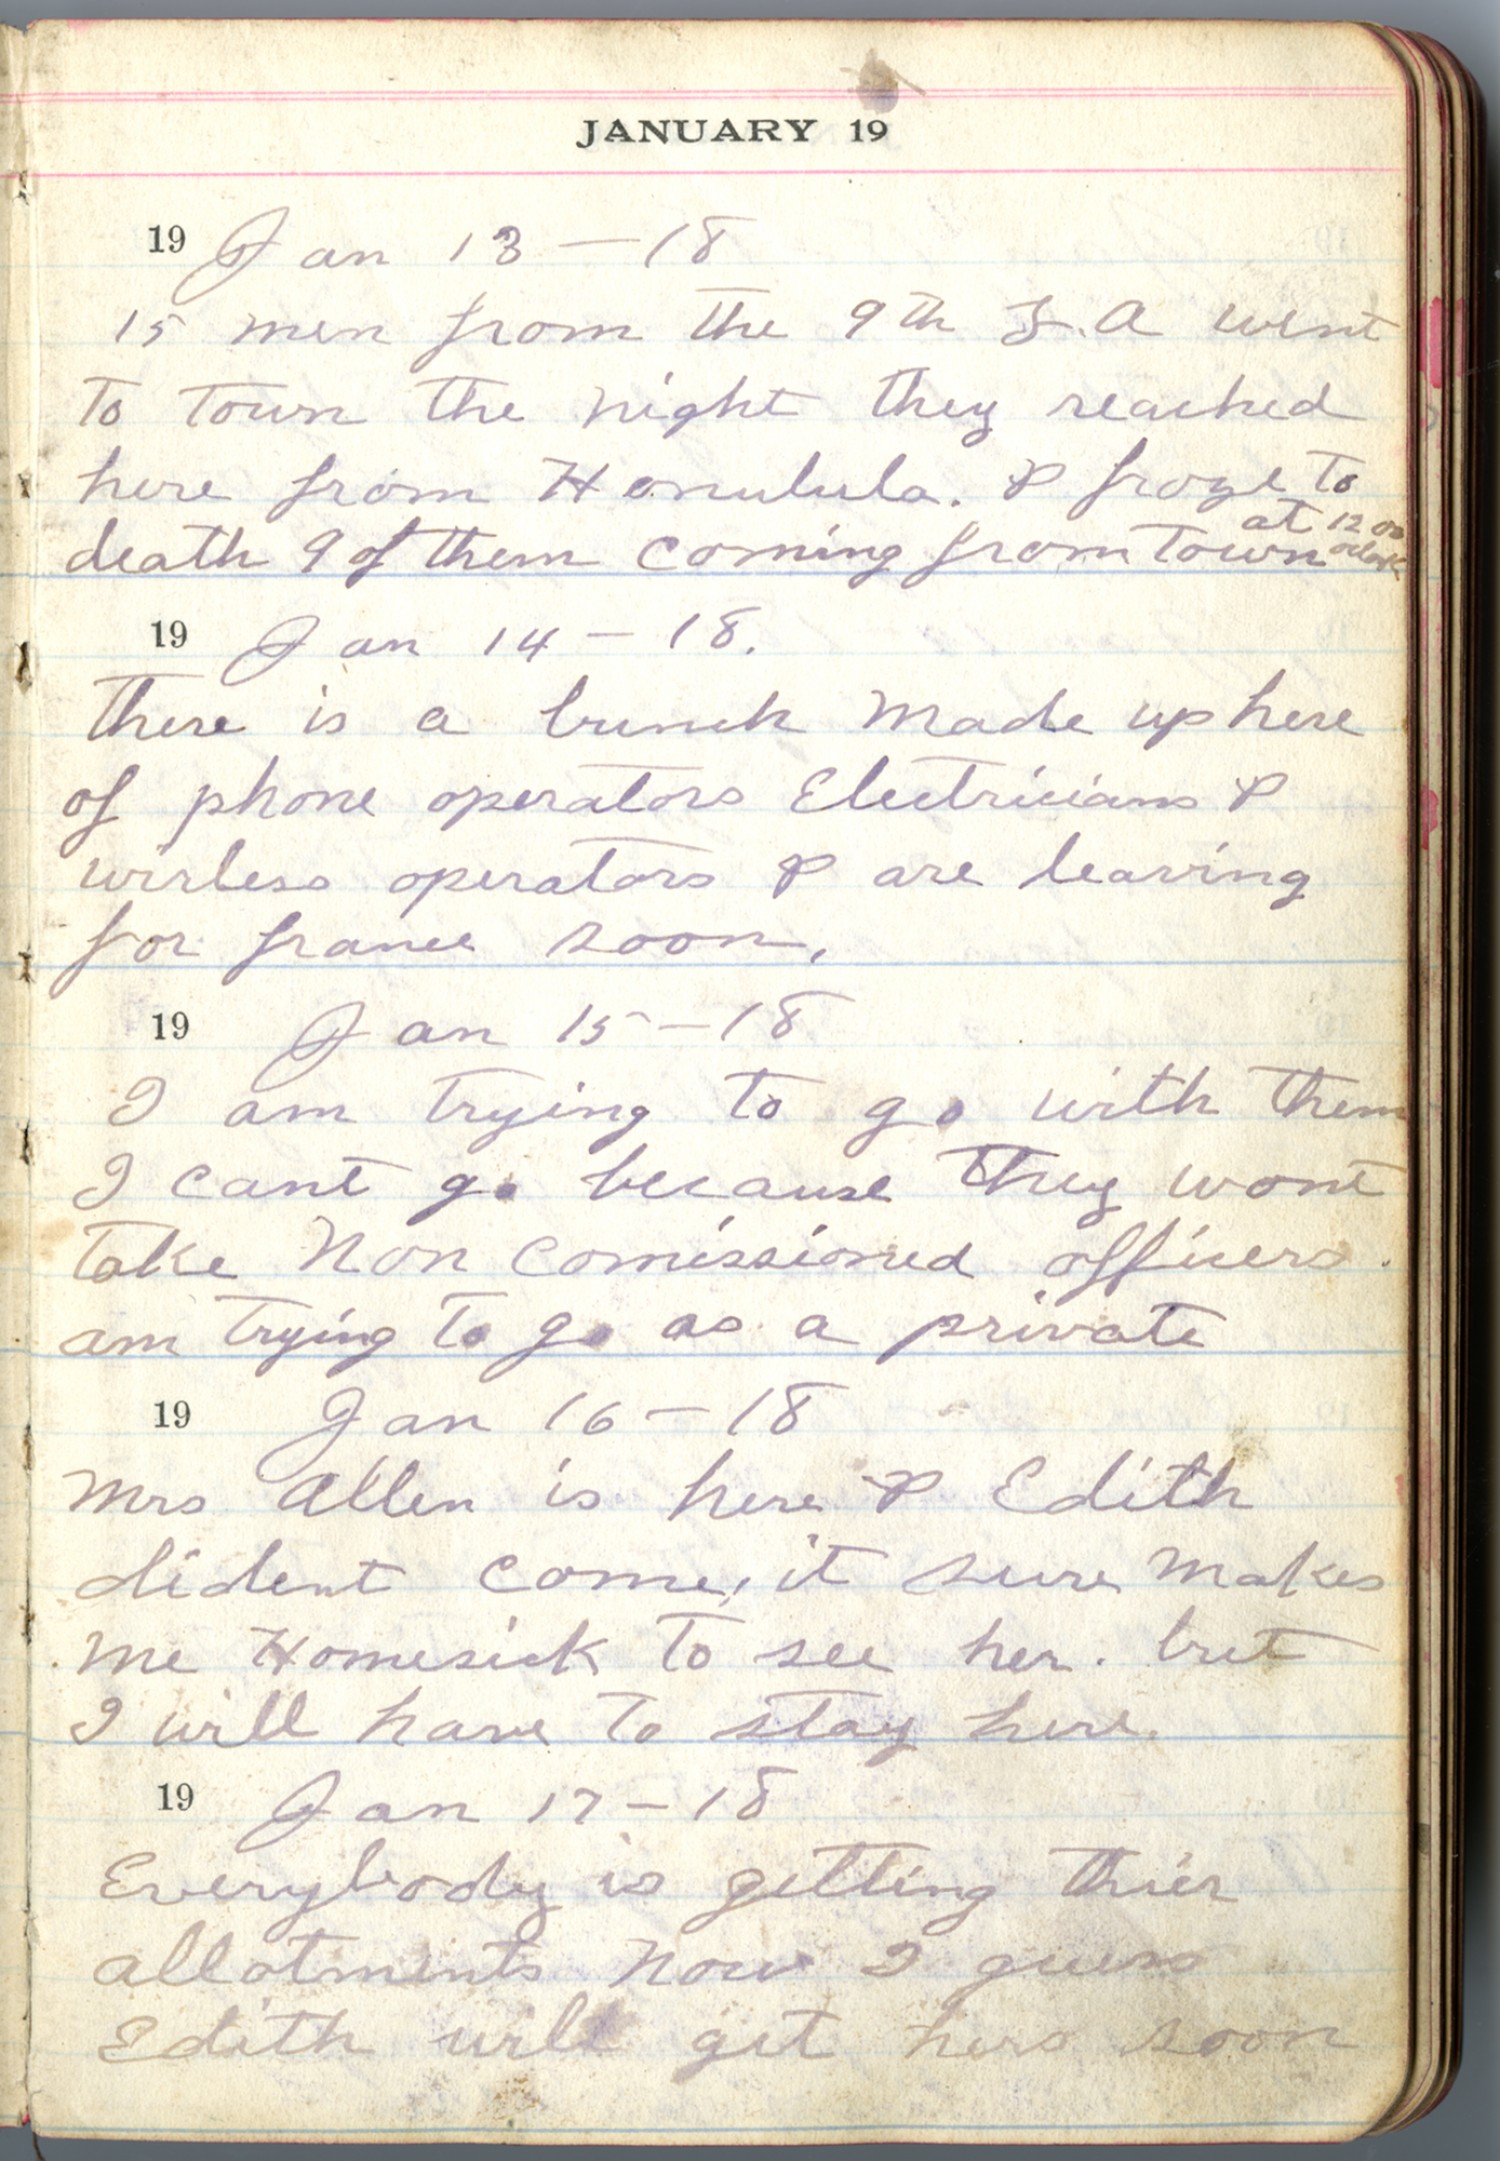 JANUARY 19
19 Jan 13 — 18
15 men from the 9th F.A went
to town the night they reached
here from Honulula. & froze to
death 9 of them coming from town at 12 00 oclock
19 Jan 14 - 18.
there is a bunch made up here
of phone operators Electricians &
wirless operators & are leaving
for france soon.
19 Jan 15 - 18
I am trying to go with them
I cant go because they wont
take Non Comissioned officers.
am trying to go as a private
19 Jan 16 - 18
Mrs Allen is here & Edith
dident come, it sure makes
me Homesick to see her. but
I will have to stay here.
19 Jan 17 - 18
Everybody is getting thier
allotments now I guess
Edith will get hers soon